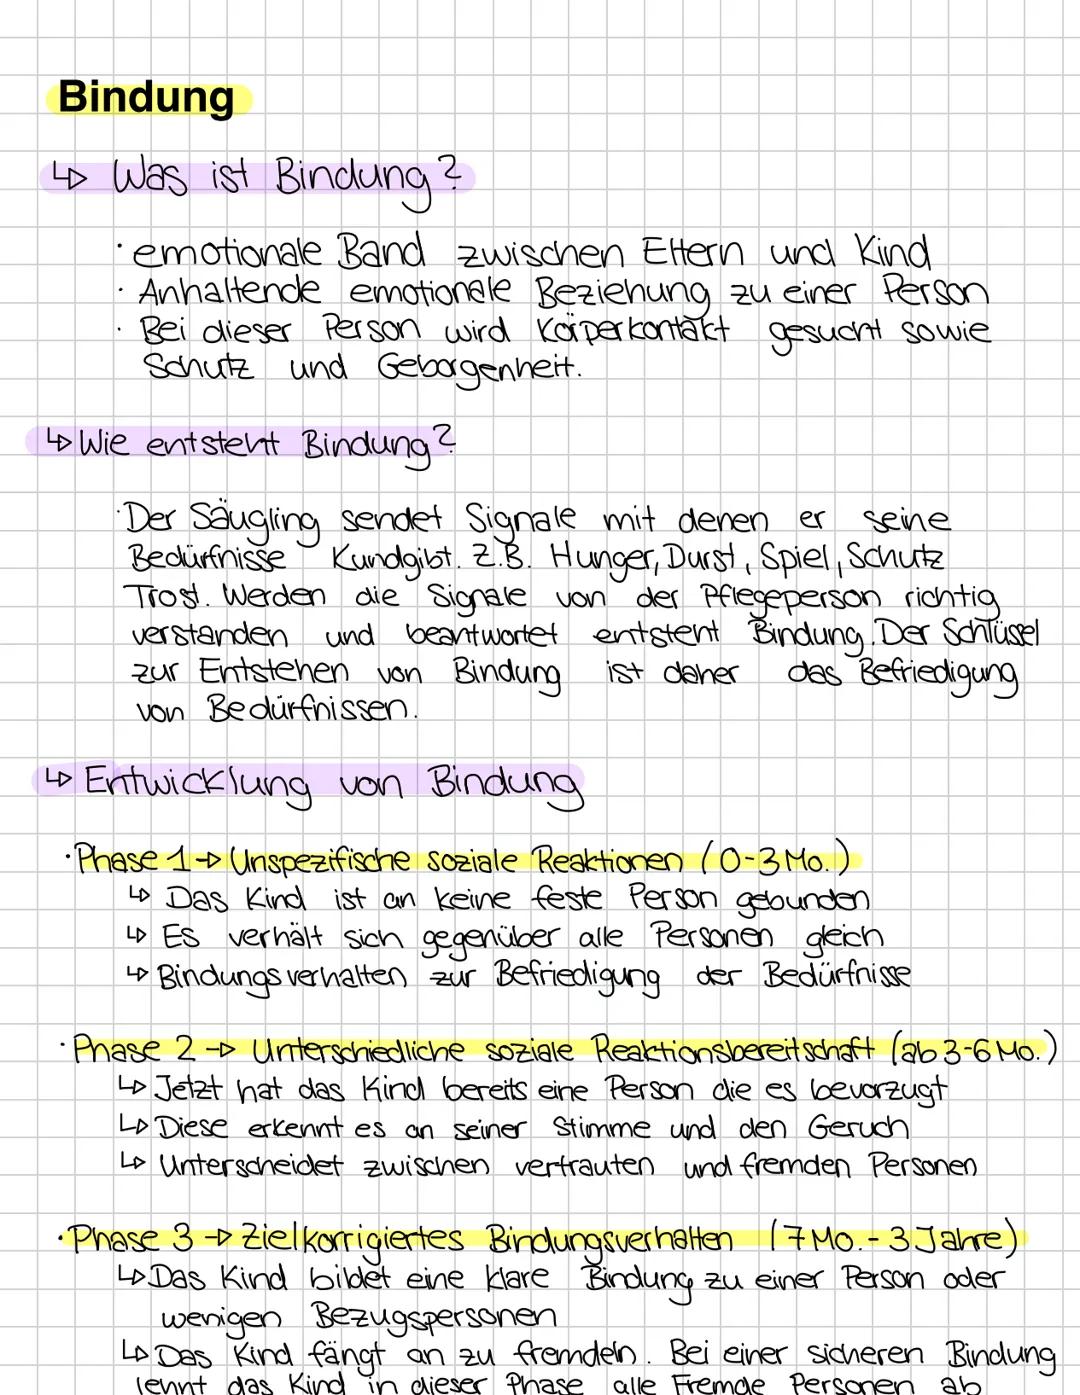 Bindung
↳ Was ist Bindung?
· emotionale Band zwischen Eltern und Kind
· Anhaltende emotionale Beziehung zu einer Person
· Bei dieser Person wird Körperkontakt gesucht sowie
Schutz und Geborgenheit.
↳ Wie entsteht Bindung?
· Der Säugling sendet Signale mit denen er seine
Bedürfnisse Kundgibt. Z.B. Hunger, Durst, Spiel, Schutz
Trost. Werden die Signale von der Pflegeperson richtig
verstanden und beantwortet entsteht Bindung. Der Schlüssel
zur Entstehen von Bindung ist daher das Befriedigung
von Bedürfnissen.
↳ Entwicklung von Bindung
· Phase 1 → Unspezifische soziale Reaktionen (0-3 Mo.)
↳ Das Kind ist an keine feste Person gebunden
↳ Es verhält sich gegenüber alle Personen gleich
↳ Bindungsverhalten zur Befriedigung der Bedürfnisse
· Phase 2 → Unterschiedliche soziale Reaktionsbereitschaft (ab 3-6 Mo.)
↳ Jetzt hat das Kind bereits eine Person die es bevorzugt
↳ Diese erkennt es an seiner Stimme und den Geruch
↳ Unterscheidet zwischen vertrauten und fremden Personen
· Phase 3 → Zielkorrigiertes Bindungsverhalten (7 Mo. - 3 Jahre)
↳ Das Kind bildet eine klare Bindung zu einer Person oder
wenigen Bezugspersonen
↳ Das Kind fängt an zu fremdeln. Bei einer sicheren Bindung
lehnt das Kind in dieser Phase alle Fremde Personen ab